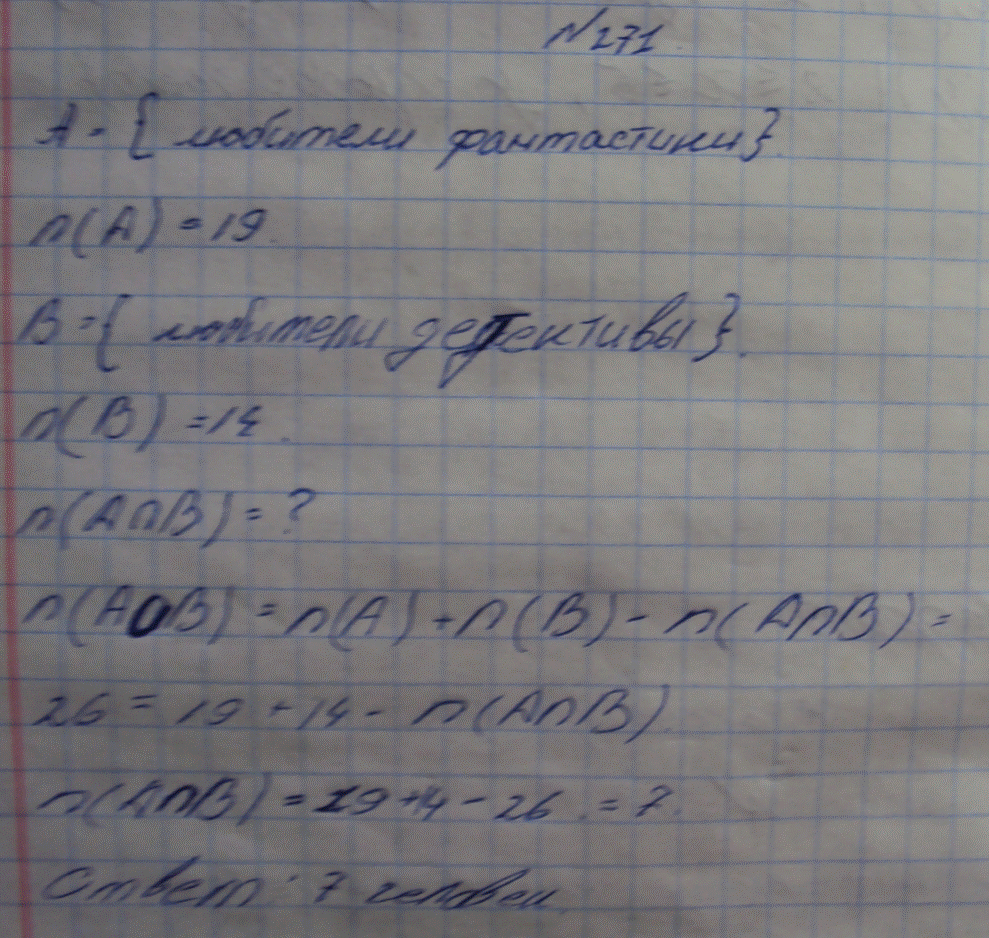 №271.
A = { любители фантастики}.
n(A) = 19.
B = { любители детективы}.
n(B) = 14.
n(A∩B) = ?
n(A∪B) = n(A) + n(B) - n(A∩B) =
26 = 19 + 14 - n(A∩B).
n(A∩B) = 19 + 14 - 26 = 7.
Ответ: 7 человек.